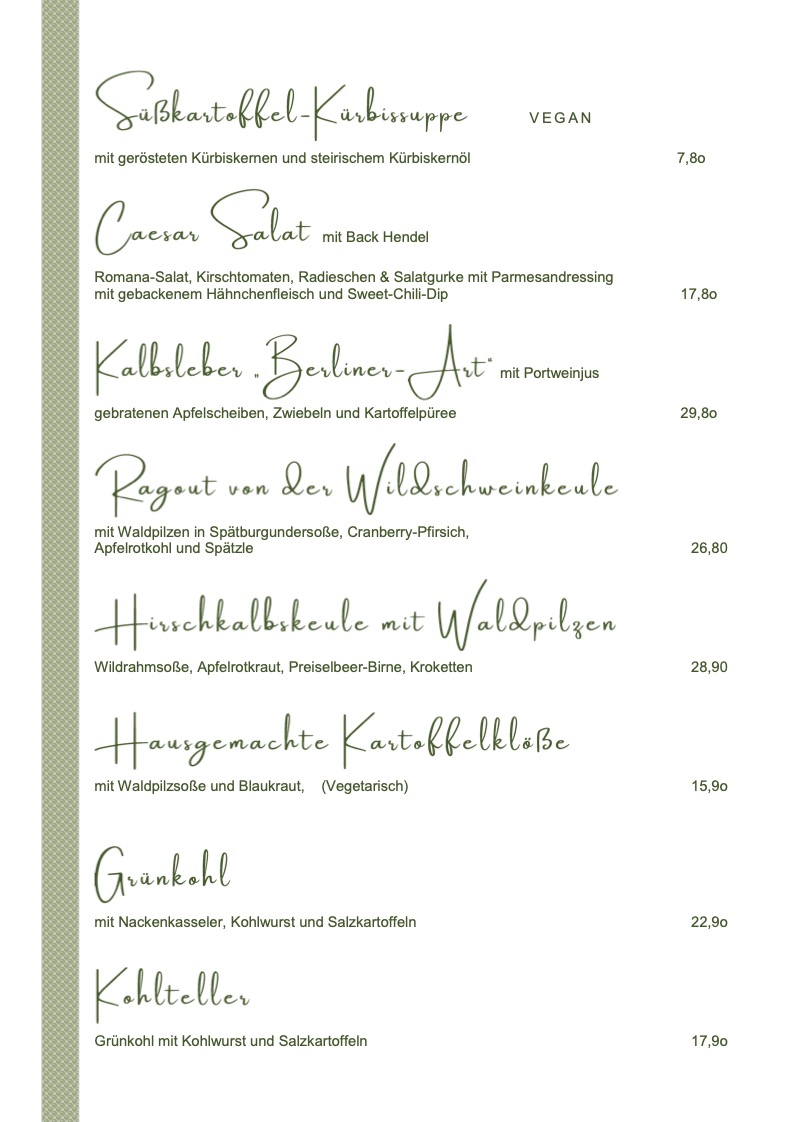 Süßkartoffel-Kürbissuppe VEGAN
mit gerösteten Kürbiskernen und steirischem Kürbiskernöl 7,8o
Caesar Salat mit Back Hendel
Romana-Salat, Kirschtomaten, Radieschen & Salatgurke mit Parmesandressing
mit gebackenem Hähnchenfleisch und Sweet-Chili-Dip 17,8o
Kalbsleber „Berliner-Art“ mit Portweinjus
gebratenen Apfelscheiben, Zwiebeln und Kartoffelpüree 29,8o
Ragout von der Wildschweinkeule
mit Waldpilzen in Spätburgundersoße, Cranberry-Pfirsich,
Apfelrotkohl und Spätzle 26,80
Hirschkalbskeule mit Waldpilzen
Wildrahmsoße, Apfelrotkraut, Preiselbeer-Birne, Kroketten 28,90
Hausgemachte Kartoffelklöße
mit Waldpilzsoße und Blaukraut, (Vegetarisch) 15,9o
Grünkohl
mit Nackenkasseler, Kohlwurst und Salzkartoffeln 22,9o
Kohlteller
Grünkohl mit Kohlwurst und Salzkartoffeln 17,9o